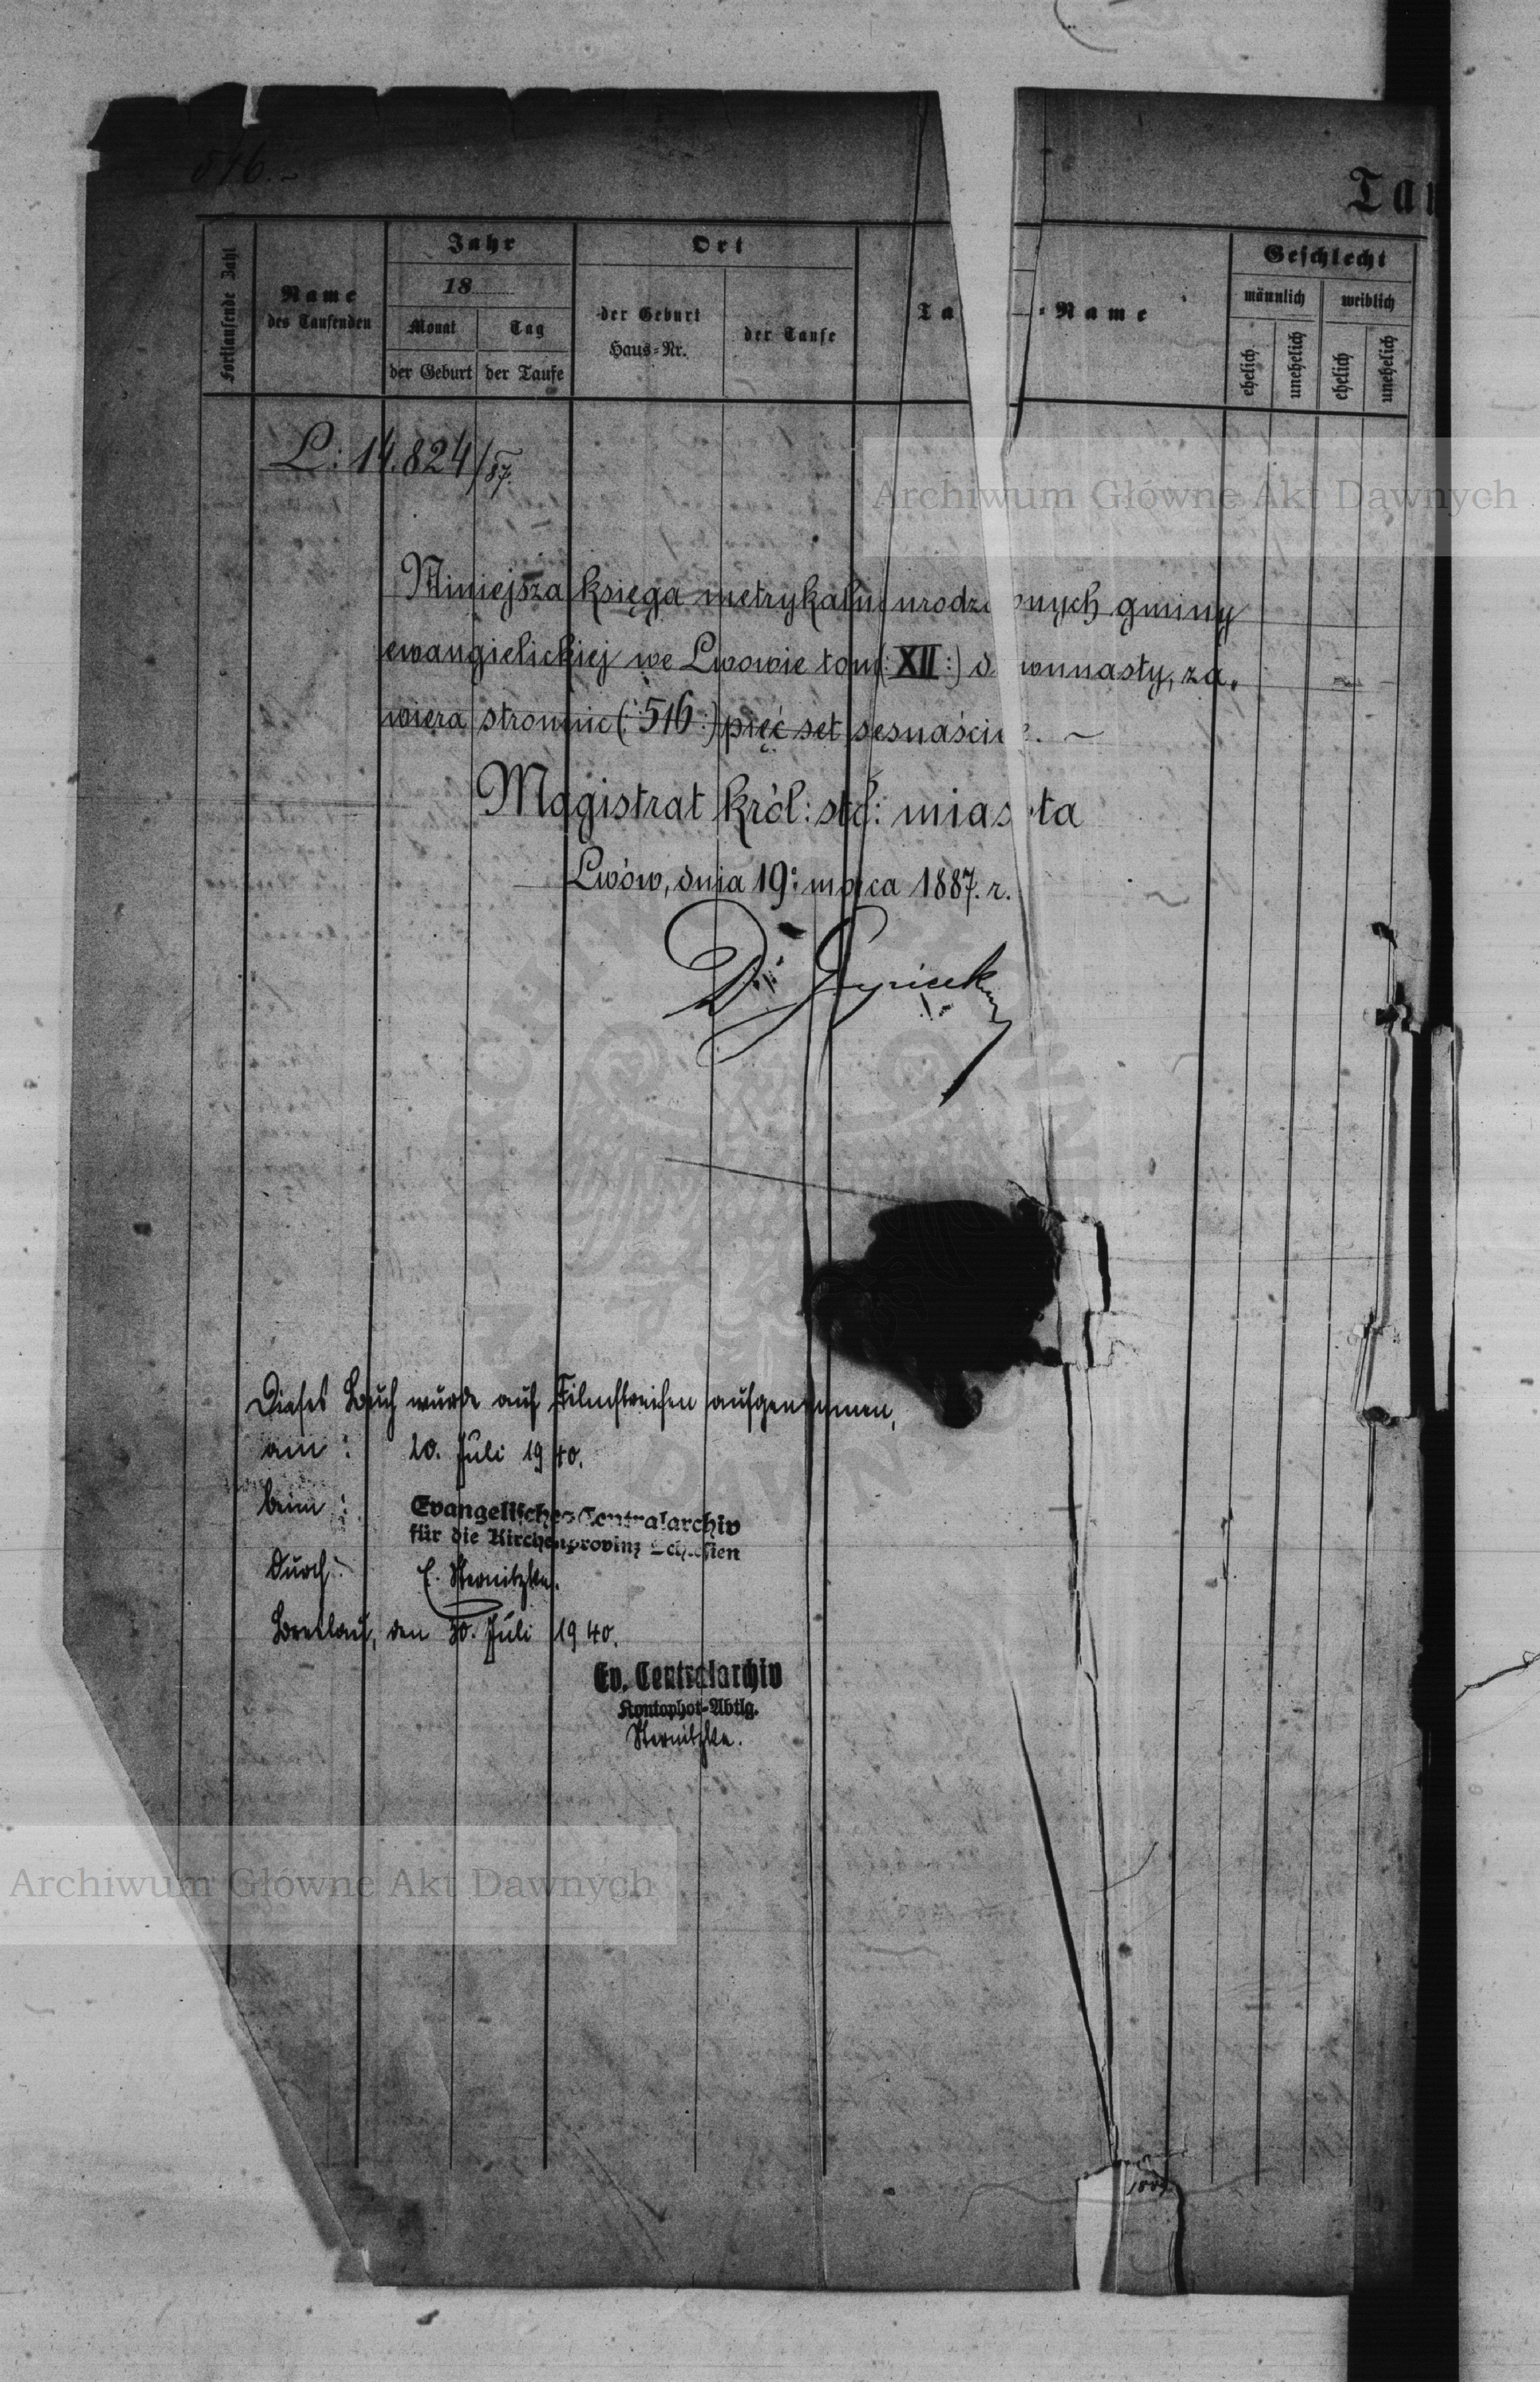 516.~
Tau
Fortlaufende Zahl
Name
des Taufenden
Jahr
18
Monat
Tag
der Geburt
der Taufe
Ort
der Geburt
Haus=Nr.
der Taufe
Ta =Name
Geschlecht
männlich
weiblich
ehelich
unehelich
ehelich
unehelich
L: 14.824/87.
Archiwum Główne Akt Dawnych
Niniejsza księga metrykalna urodzonych gminy
ewangielickiej we Lwowie tom (:XII:) dwunasty, za,
wiera stronnic (:516:) pięć set sesnaście. ~
Magistrat król: stół: miasta
Lwów, dnia 19: marca 1887. r.
Dieses Buch wurde auf Filmstreifen aufgenommen,
am: 20. Juli 1940.
beim: Evangelisches Centralarchiv
für die Kirchenprovinz Schlesien
durch: E. Sternitzke.
Breslau, den 20. Juli 1940.
Ev. Centralarchiv
Kontophot=Abtlg.
Sternitzke.
Archiwum Główne Akt Dawnych